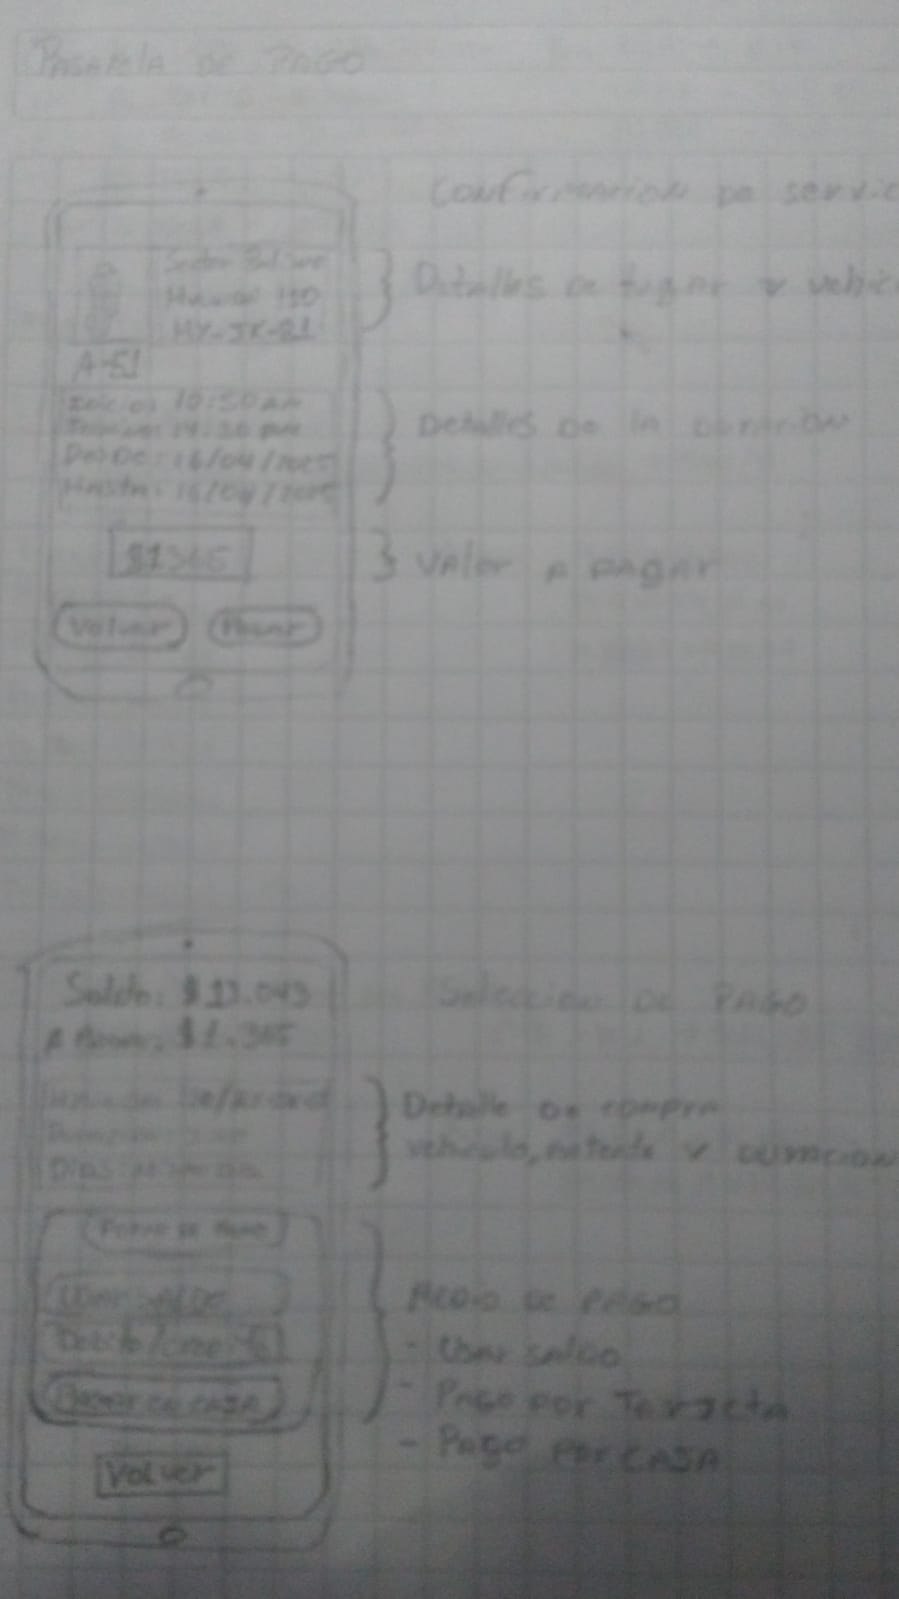 PASARELA DE PAGO
CONFIRMACION DE SERVIC
Sector
110
HY-JK-21
A-51
Detalles de lugar y vehic
Inicio: 10:50 AM
Desde: 16/04/2025
Hasta: 16/04/2025
Detalles de la duracion
$1365
Valor a pagar
Volver
Pagar
Saldo: $13.043
A Pagar: $1.365
Seleccion de PAGO
Detalle de compra
vehiculo, patente y duracion
Forma de pago
Usar saldo
Debito/credito
Pagar en caja
Medio de PAGO
- Usar saldo
- Pago por Tarjeta
- Pago por CAJA
Volver